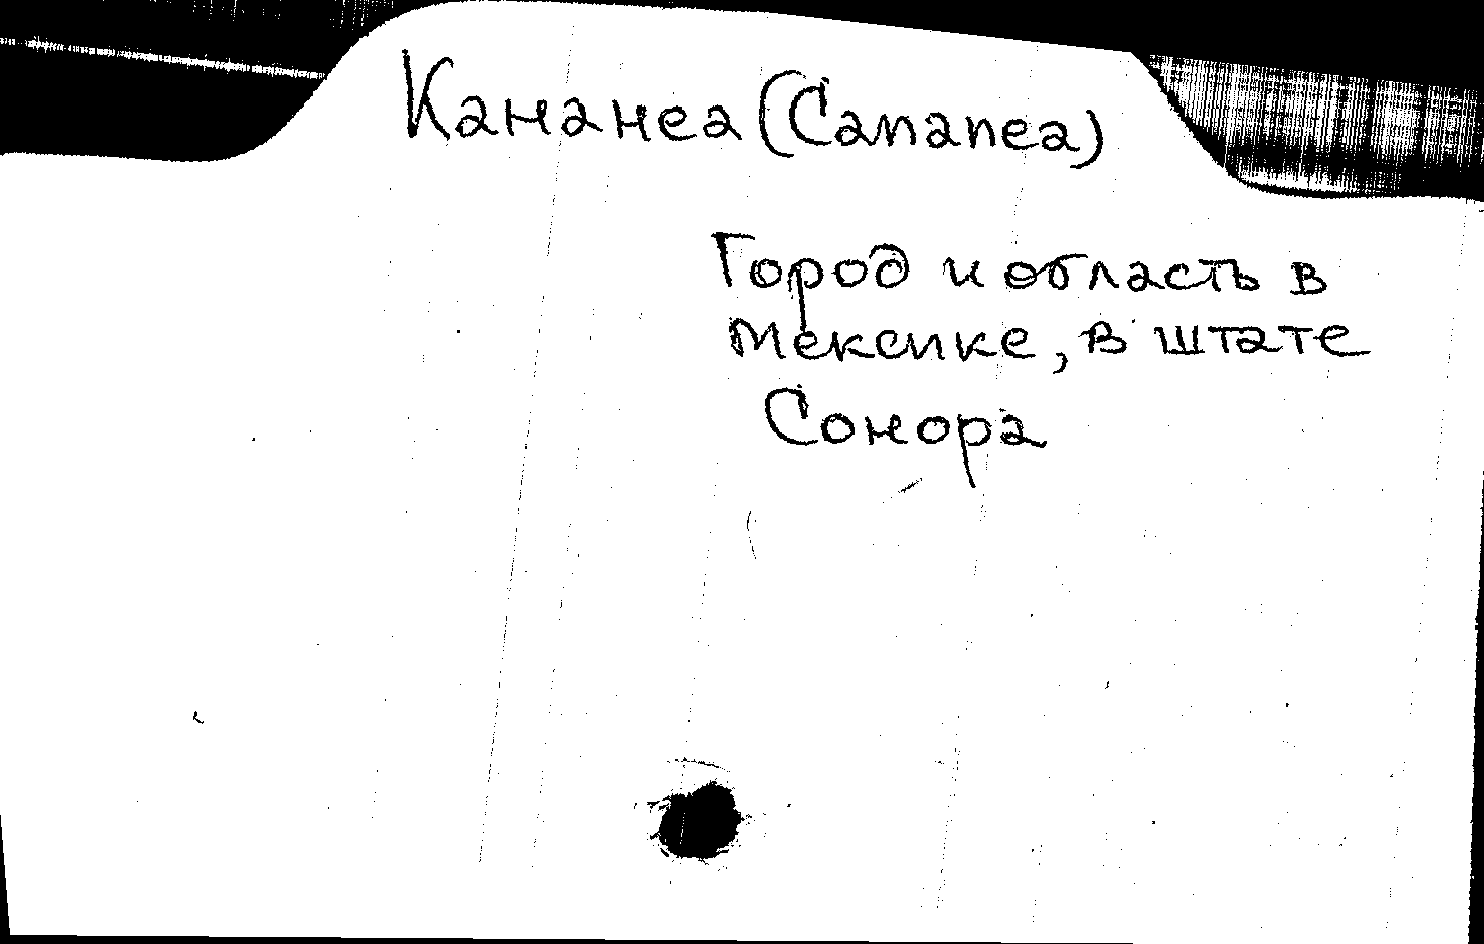 Кананеа (Cananea)
Город и область в
Мексике, в штате
Сонора